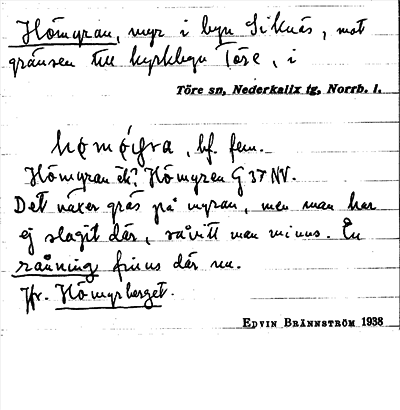 Hömyran, myr i byn Siknäs, mot
gränsen till kyrkbyn Töre, i
Töre sn, Nederkalix tg, Norrb. l.
bf. fem.
Hömyran ek? Hömyren G 37 NV.
Det växer gräs på myran, men man har
ej slagit där, såvitt man minns. En
raåning finns där nu.
Jfr. Hömyrberget.
EDVIN BRÄNNSTRÖM 1938